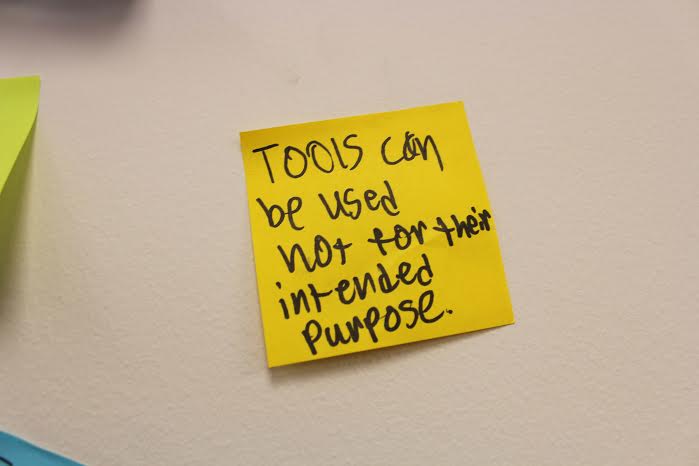 TOOLS can
be used
not for their
intended
purpose.